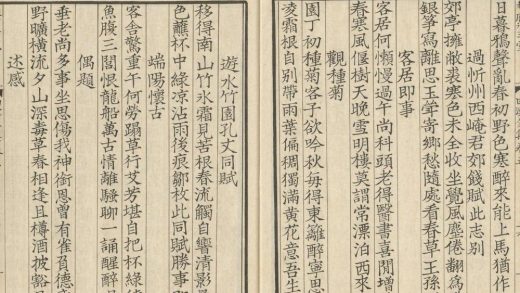 日暮鴉聲亂春初野色寒醉來能上馬猶作
過忻州西崦君郊餞賦此志别
郊亭擁敝裘寒色未全收坐覺風塵倦翻為
銀筝寫離思玉斝寄鄉愁隨處看春草王孫
客居即事
客居何懶慢過午尚科頭老得醫書喜閒增
春寒風偃樹天晚雪明樓莫謂常漂泊西來
觀種菊
園丁初種菊客子欲吟秋每得東籬醉寧思
凌霜根自别帶雨葉偏稠獨滿黄花意吾生
遊水竹園孔丈同賦
移得南山竹氷霜見苦根春流觸自響清影
色籬杯中緑凉沾雨後痕鄒枚此同賦勝事
端陽懷古
客舎驚重午何勞躡草行艾芳堪自把杯緑
魚腹三閭恨龍船萬古情離騷聊一誦醒醉
偶題
垂老尚多事坐思傷我神銜恩曾有雀負德
野曠横流夕山深毒草春相逢且樽酒披豁
述感